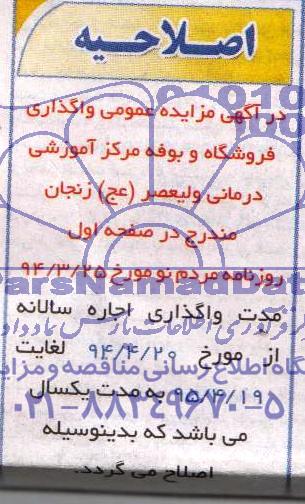 اصلاحیه
در آگهی مزایده عمومی واگذاری
فروشگاه و بوفه مرکز آموزشی
درمانی ولیعصر (عج) زنجان
مندرج در صفحه اول
روزنامه مردم نو مورخ ۹۴/۳/۲۵
مدت واگذاری اجاره سالانه
از مورخ ۹۴/۴/۲۰ لغایت
۹۵/۴/۱۹ به مدت یکسال
می باشد که بدینوسیله
اصلاح می گردد.
ParsNamadData
۰۲۱-۸۸۳۴۹۶۷۰-۵